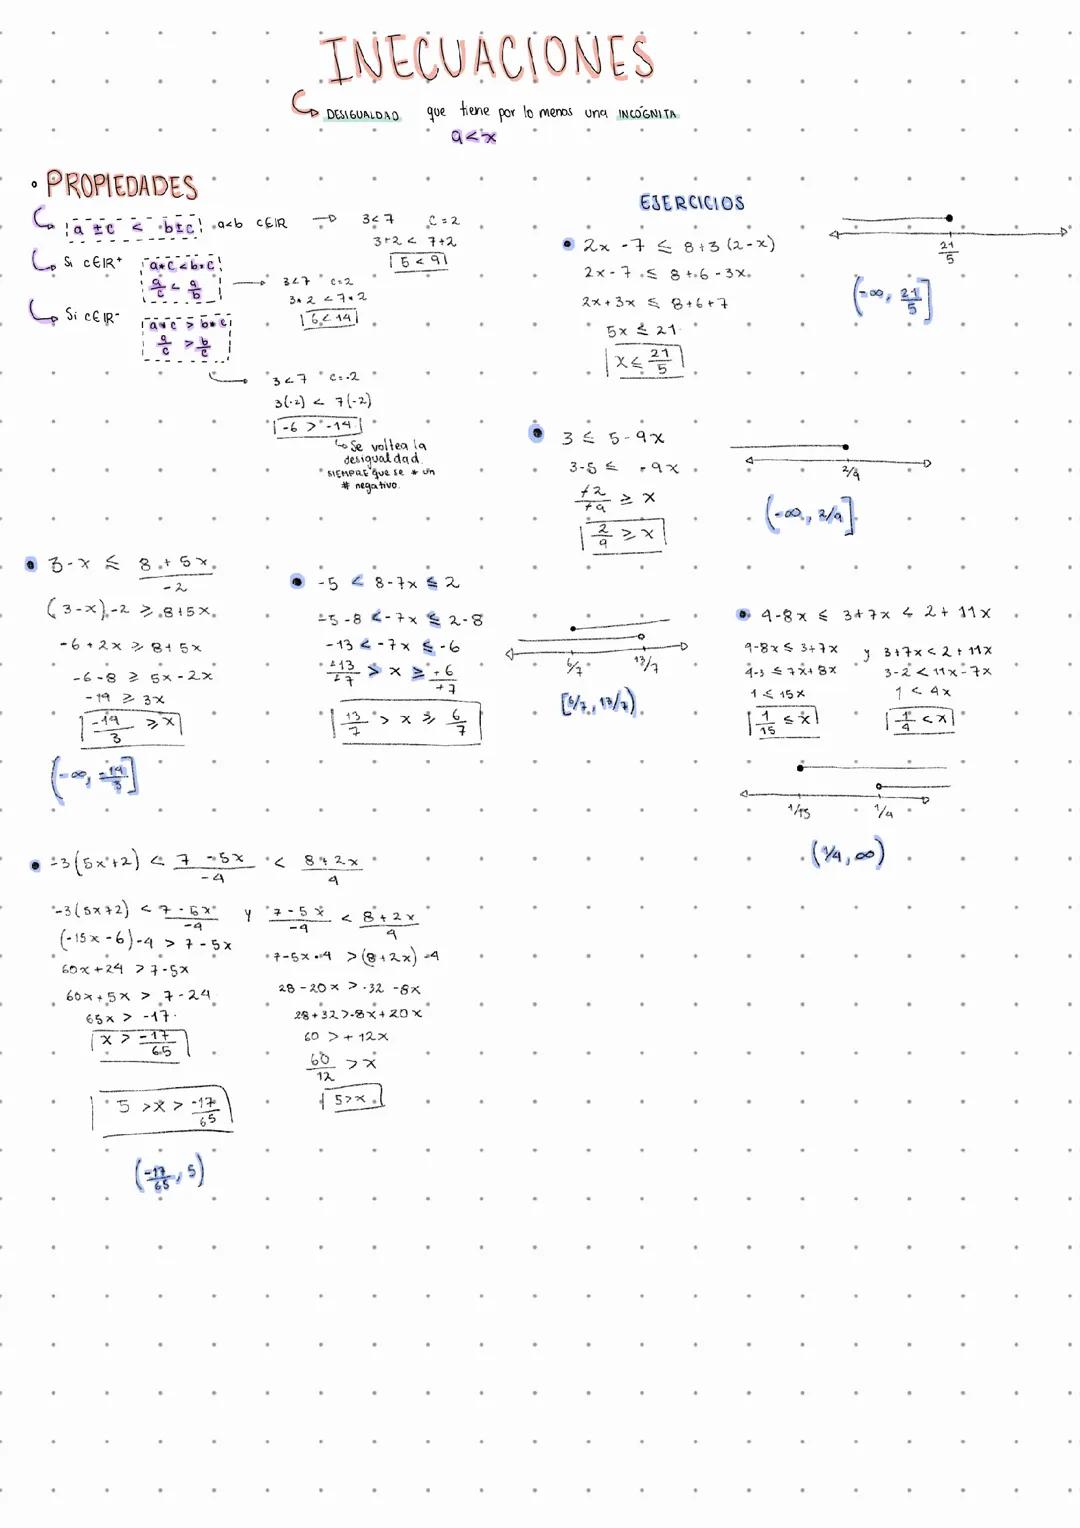 INECUACIONES
DESIGUALDAD que tiene por lo menos una INCÓGNITA
a<x
• PROPIEDADES
a ± c < b ± c a<b c∈IR → 3<7 c=2
3+2 < 7+2
5 < 9
Si c∈IR+ a*c<b*c
a/c < a/b
3<7 c=2
3*2 <7*2
6<14
Si c∈IR- a*c > b*c
a/c > b/c
3<7 c=-2
3(-2) < 7(-2)
-6 > -14
Se voltea la
desigualdad.
SIEMPRE que se * un
# negativo.
EJERCICIOS
• 2x -7 ≤ 8+3(2-x)
2x-7 ≤ 8+6-3x
2x+3x ≤ 8+6+7
5x ≤ 21
x ≤ 21/5
21/5
(-∞, 21/5]
• 3 ≤ 5-9x
3-5 ≤ -9x
-2/-9 ≥ x
2/9 ≥ x
2/9
(-∞, 2/9]
• 3-x ≤ 8+5x/-2
(3-x)-2 ≥ 8+5x
-6+2x ≥ 8+5x
-6-8 ≥ 5x-2x
-14 ≥ 3x
-14/3 ≥ x
(-∞, -14/3]
• -5 < 8-7x ≤ 2
-5-8 <-7x ≤ 2-8
-13 <-7x ≤ -6
-13/-7 > x ≥ -6/-7
13/7 > x ≥ 6/7
6/7 13/7
[6/7, 13/7)
• 4-8x ≤ 3+7x < 2+11x
4-8x ≤ 3+7x y 3+7x < 2+11x
4-3 ≤ 7x+8x 3-2 < 11x-7x
1 ≤ 15x 1 < 4x
1/15 ≤ x 1/4 < x
1/15 1/4
(1/4, ∞)
• -3(5x+2) < 7-5x/-4 < 8+2x/4
-3(5x+2) < 7-5x/-4 y 7-5x/-4 < 8+2x/4
(-15x-6)-4 > 7-5x 7-5x*4 > (8+2x)-4
60x+24 > 7-5x 28-20x > -32 -8x
60x+5x > 7-24 28+32>-8x+20x
65x > -17 60 > +12x
x > -17/65 60/12 > x
5 > x > -17/65 5>x
(-17/65, 5)